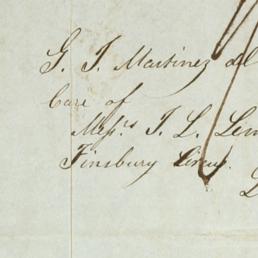 G. J. Martinez del
Care of
Mess.rs J. L. Lem
Finsbury Circus.
L